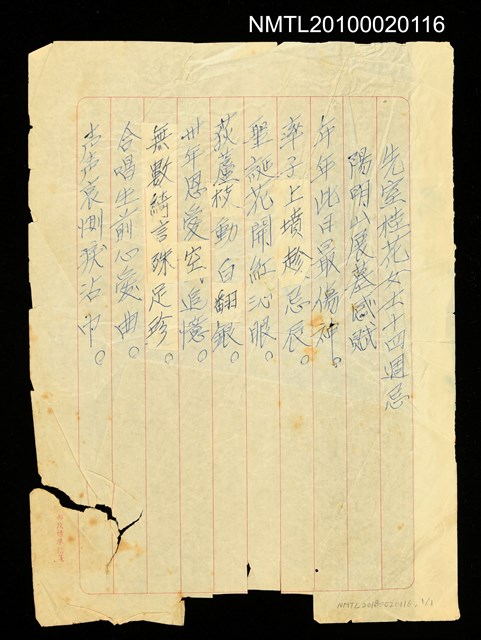 NMTL20100020116
先室桂花女士十四週忌
陽明山展墓感賦
年年此日最傷神。
率子上墳趁忌辰。
聖誕花開紅沁眼。
荻蘆枝動白翻銀。
卅年恩愛空追憶。
無數綺言殊足珍。
合唱生前心愛曲。
声声哀惻淚沾巾。
NMTL20100020116, 1/1